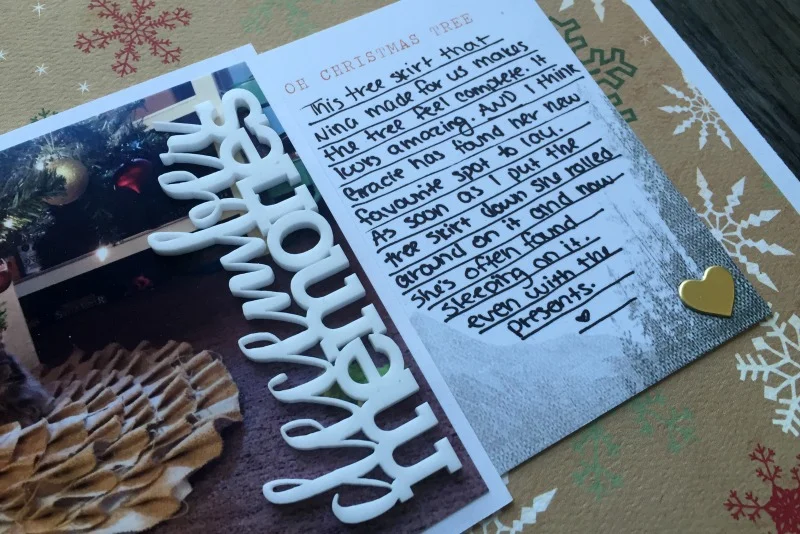 OH CHRISTMAS TREE
This tree skirt that
Nina made for us makes
the tree feel complete. It
looks amazing. AND I think
Gracie has found her new
favourite spot to lay.
As soon as I put the
tree skirt down she rolled
around on it and now
she's often found
sleeping on it.
even with the
presents.
memories